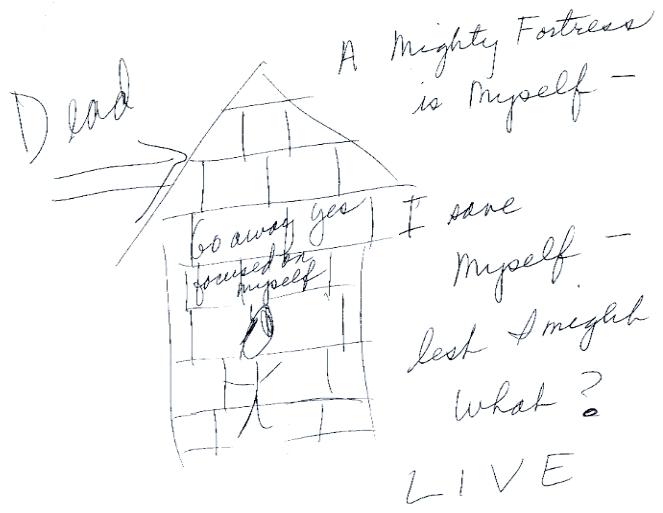 A Mighty Fortress
is Myself —
Dead
Go away yes
focused on
myself
I save
Myself —
lest I might
What?
LIVE